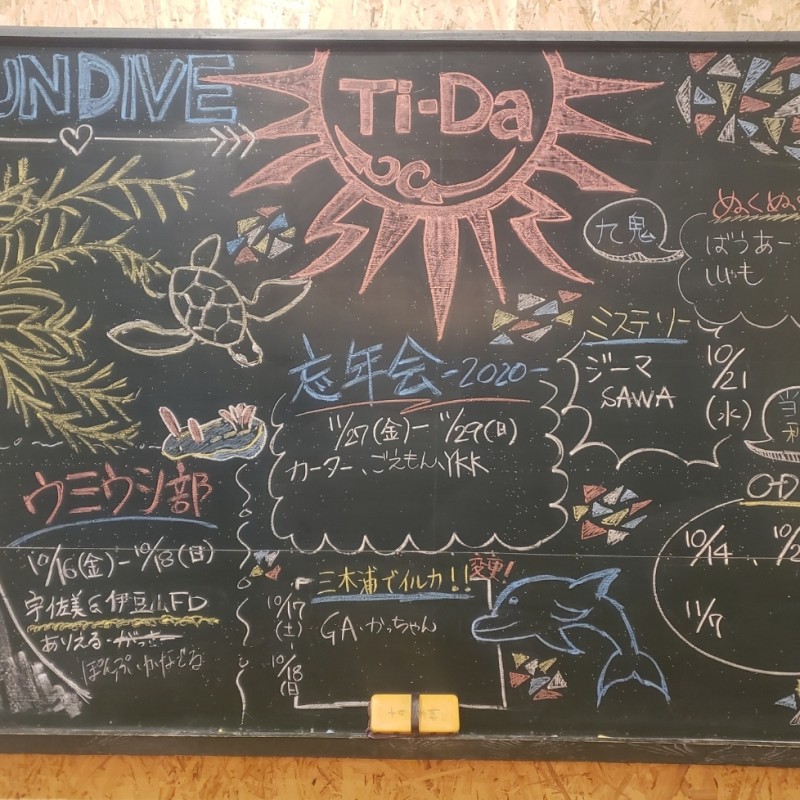 UNDIVE
Ti-Da
九鬼
ぬくぬく
ばうあー
しじゃも
ミステリー
ジーマ
SAWA
10/21
(水)
忘年会-2020-
11/27(金)-11/29(日)
カーター、ごえもん、YKK
ウミウシ部
10/16(金)-10/18(日)
宇佐美&伊豆山FD
ありえる・がっき
ぽんぷ・かなでる
三木浦でイルカ!!
変更!
10/17
(土)
-
10/18
(日)
GA・かっちゃん
10/14、10/2
11/7